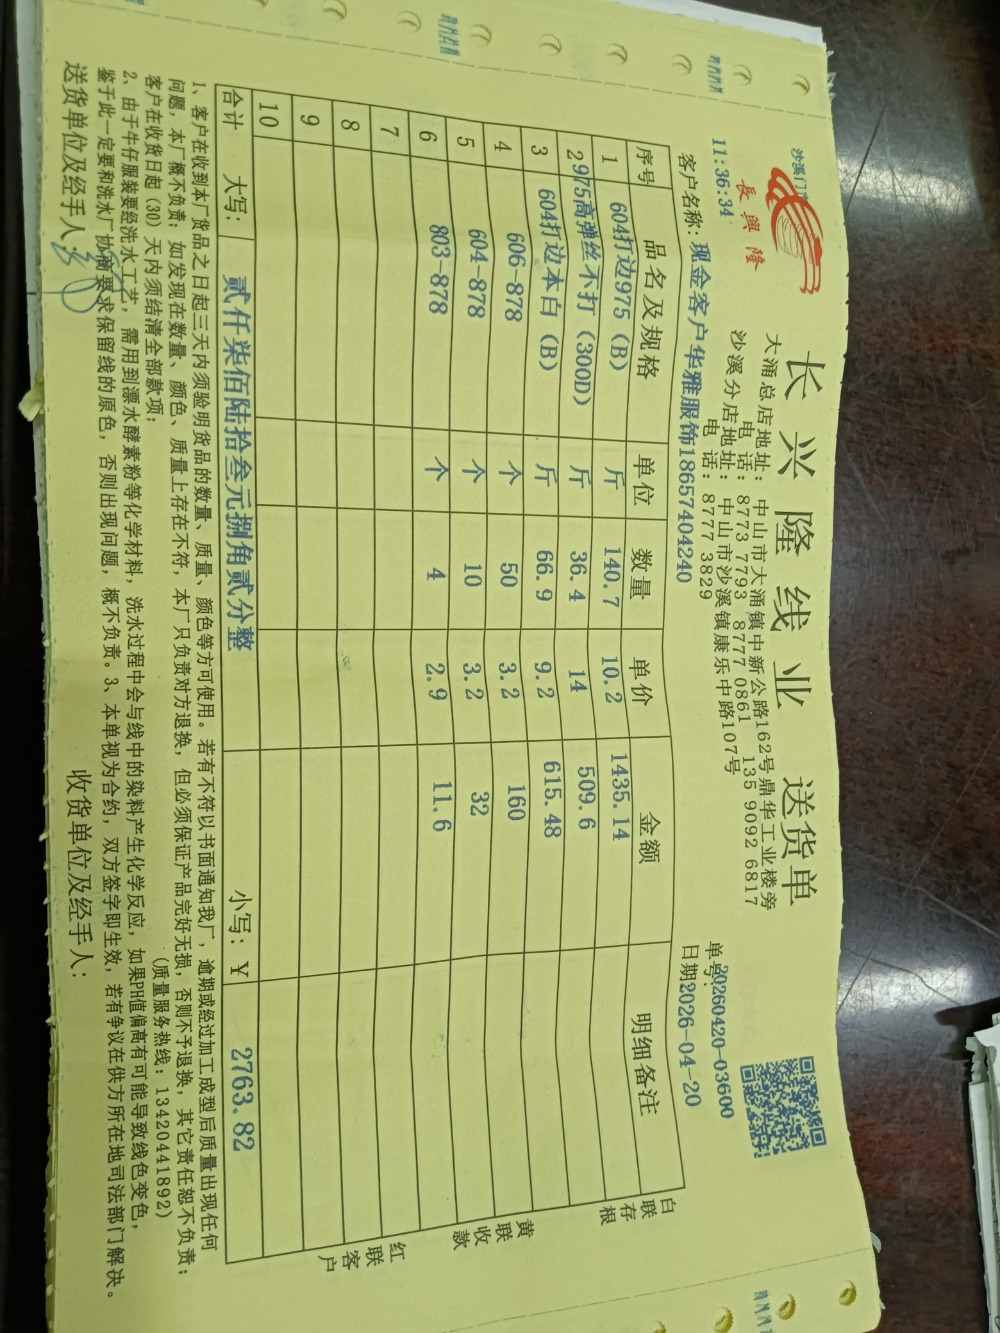 沙溪门
長興隆
长兴隆线业 送货单
大涌总店地址：中山市大涌镇中新公路162号鼎华工业楼旁
电话：8773 7793 8777 0861 135 9092 6817
沙溪分店地址：中山市沙溪镇康乐中路107号
电话：8777 3829
11:36:34
单号：20260420-03600
客户名称：现金客户华雅服饰18657404240 日期2026-04-20
序号 品名及规格 单位 数量 单价 金额 明细备注
1 604打边975（B） 斤 140.7 10.2 1435.14
2 975高弹丝不打（300D） 斤 36.4 14 509.6
3 604打边本白（B） 斤 66.9 9.2 615.48
4 606-878 个 50 3.2 160
5 604-878 个 10 3.2 32
6 803-878 个 4 2.9 11.6
7
8
9
10
合计 大写：贰仟柒佰陆拾叁元捌角贰分整 小写：¥ 2763.82
白联存根
黄联收款
红联客户
1、客户在收到本厂货品之日起三天内须验明货品的数量、质量、颜色等方可使用。若有不符以书面通知我厂，逾期或经过加工成型后质量出现任何
问题，本厂概不负责；如发现在数量、颜色、质量上存在不符，本厂只负责对方退换，但必须保证产品完好无损，否则不予退换，其它责任恕不负责；
客户在收货日起（30）天内须结清全部款项； （质量服务热线：13420441892）
2、由于牛仔服装要经洗水工艺，需用到漂水酵素粉等化学材料，洗水过程中会与线中的染料产生化学反应，如果PH值偏高有可能导致线色变色，
鉴于此一定要和洗水厂协商要求保留线的原色，否则出现问题，概不负责。3、本单视为合约，双方签字即生效，若有争议在供方所在地司法部门解决。
送货单位及经手人： 收货单位及经手人：